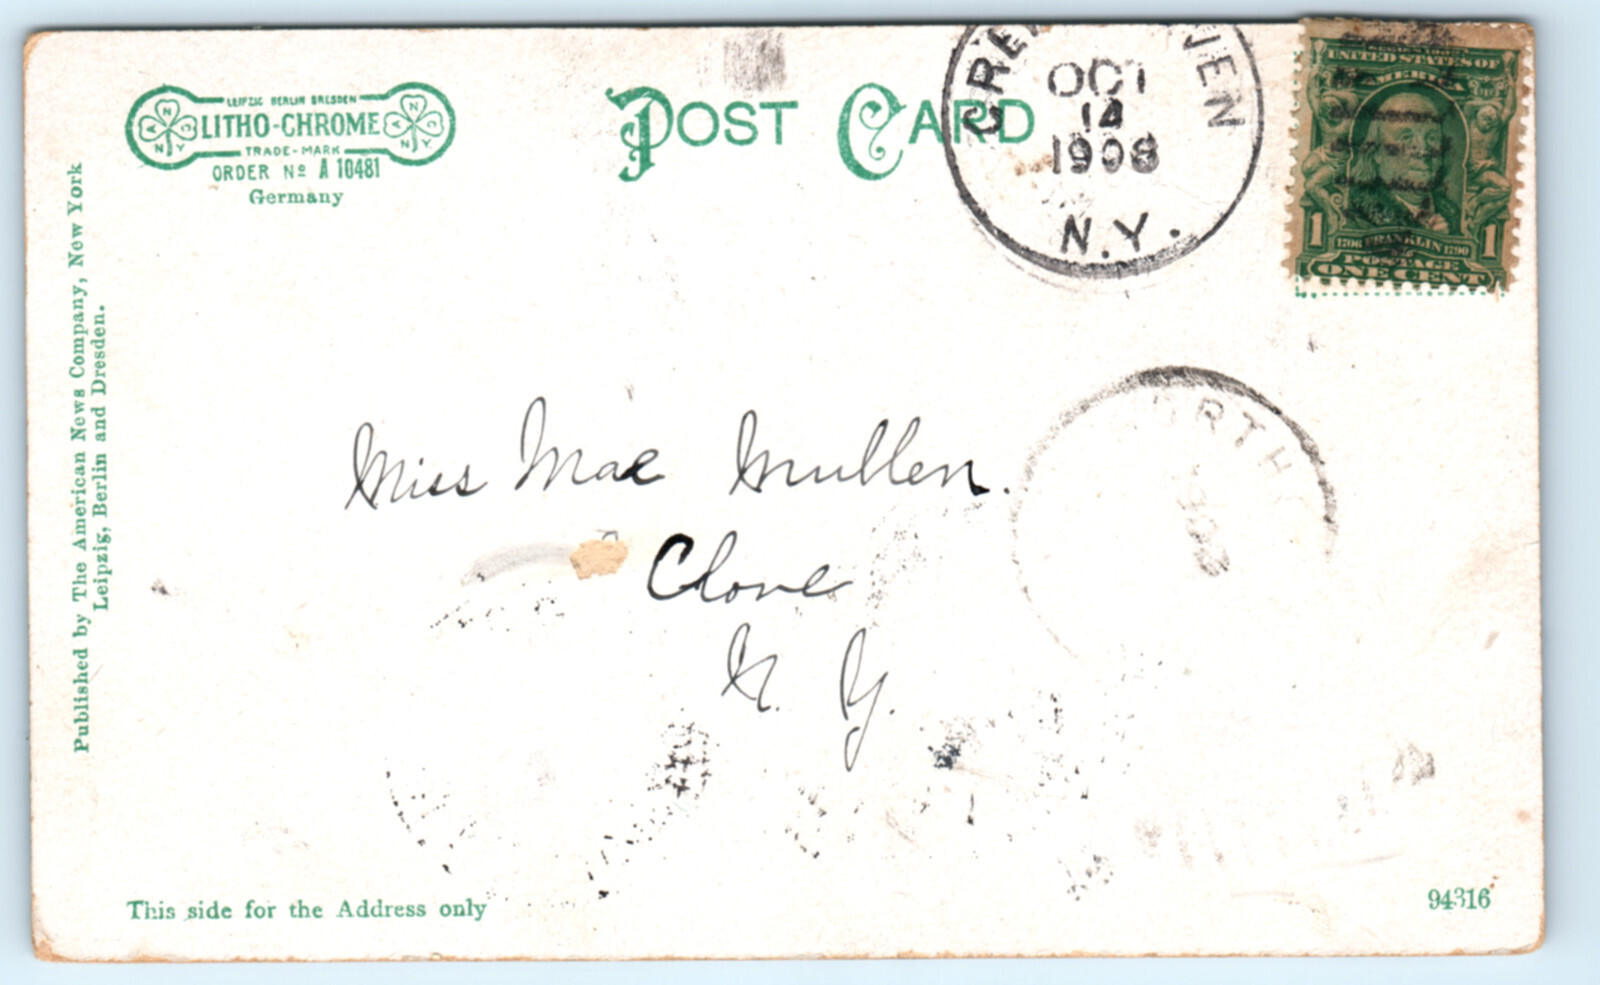 LEIPZIG BERLIN DRESDEN
LITHO-CHROME
TRADE-MARK
ORDER Nº A 10481
Germany
POST CARD
OCT
14
1908
N.Y.
UNITED STATES OF
AMERICA
1 1
1706 FRANKLIN 1790
POSTAGE
ONE CENT
Published by The American News Company, New York
Leipzig, Berlin and Dresden.
Miss Mae Mullen.
Clove
N. Y.
This side for the Address only
94316